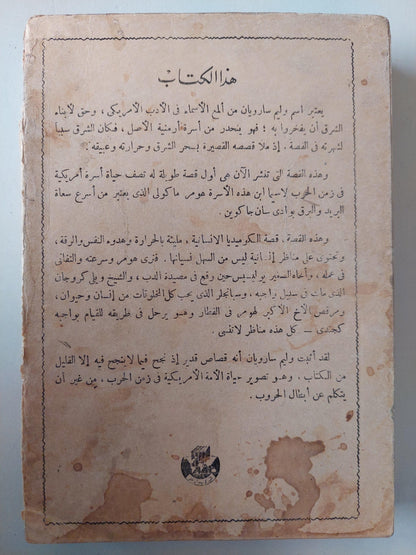 هذا الكتاب
يعتبر اسم وليم سارويان من ألمع الأسماء فى الأدب الأمريكى ، وحق لأبناء
الشرق أن يفخروا به ؛ فهو ينحدر من أسرة أرمنية الأصل، فكان الشرق سبباً
لشهرته فى القصة . إذ ملأ قصصه القصيرة بسحر الشرق وحرارته وعبيقه .
وهذه القصة التى تنشر الآن هى أول قصة طويلة له تصف حياة أسرة أمريكية
فى زمن الحرب لاسيما ابن هذه الأسرة هومر ماكولى الذى يعتبر من أسرع سعاة
البريد والبرق بوادى سان جاكوين .
وهذه القصة . قصة الكوميديا الانسانية ، مليئة بالحرارة وهدوء النفس والرقة ،
وتحتوى على مناظر إنسانية ليس من السهل نسيانها . فنرى هومر وسرعته والتفانى
فى عمله ، وأخاه الصغير يوليسيس حين وقع فى مصيدة الدب ، والشيخ ويلى كروجان
الذى مات فى سبيل واجبه ، وسبانجلر الذى يحب كل المخلوقات من إنسان وحيوان ،
ومرقص الأخ الأكبر لهومر فى القطار وهو يرحل فى طريقه للقيام بواجبه
كجندى — كل هذه مناظر لاتنسى .
لقد أثبت وليم سارويان أنه قصاص قدير إذ نجح فيما لاينجح فيه إلا القليل
من الكتاب . وهو تصوير حياة الأمة الأمريكية فى زمن الحرب ، من غير أن
يتكلم عن أبطال الحروب .